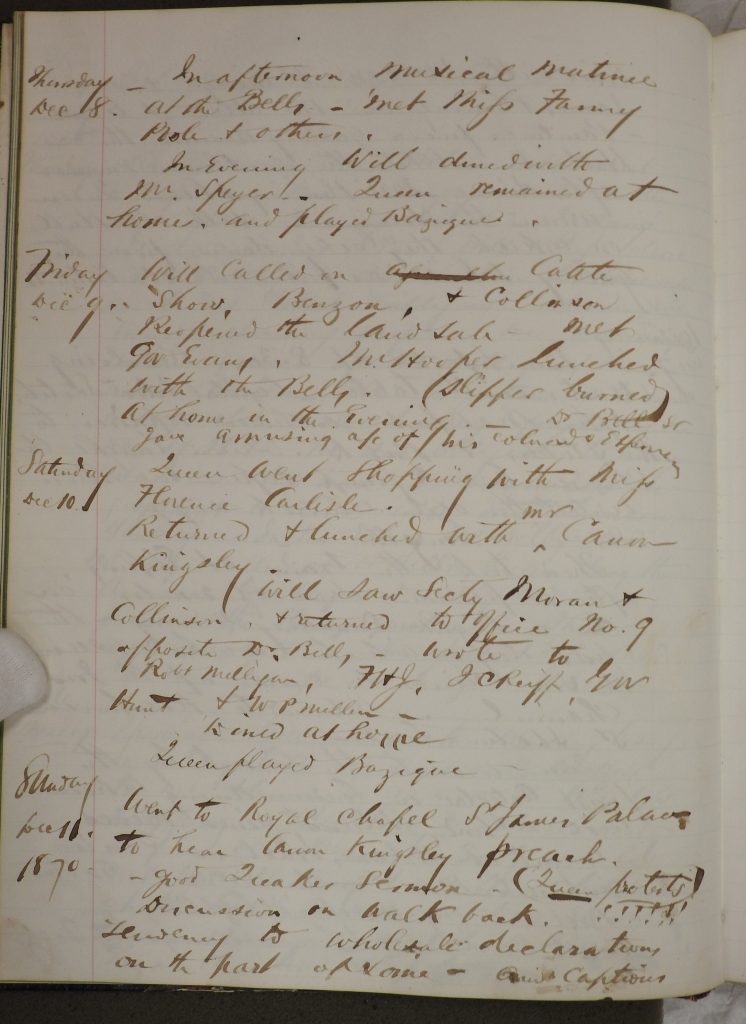 Thursday - In afternoon musical matinee
Dec 8. at the Bells - met Miss Fanny
& others.
In Evening Will dined with
Mr. Speyer. Queen remained at
home. and played Bazique.
Friday Will called on Cattle
Dec 9. Show, Benzon, & Collinson
Reopened the land sale - met
Gov Evans. Mr Hooper lunched
with the Bells. (Slipper burned)
At home in the Evening. - Dr Bell Sr
gave amusing of his
Saturday Queen went shopping with Miss
Dec 10. Florence Carlisle.
Returned & lunched with mr Canon
Kingsley.
Will saw Secty Moran &
Collinson. & returned to office No. 9
opposite Dr. Bells - wrote to
Robt Milligan, FHJ, J C Reiff, Gov
Hunt & W P Mellen -
Dined at home
Queen played Bazique
Sunday
Dec 11. Went to Royal Chapel St James Palace
1870 to hear Canon Kingsley preach.
- good Quaker Sermon - (Queen protests)
Discussion on walk back. !!!!!!
Tendency to wholesale declarations
on the part of some - Captious